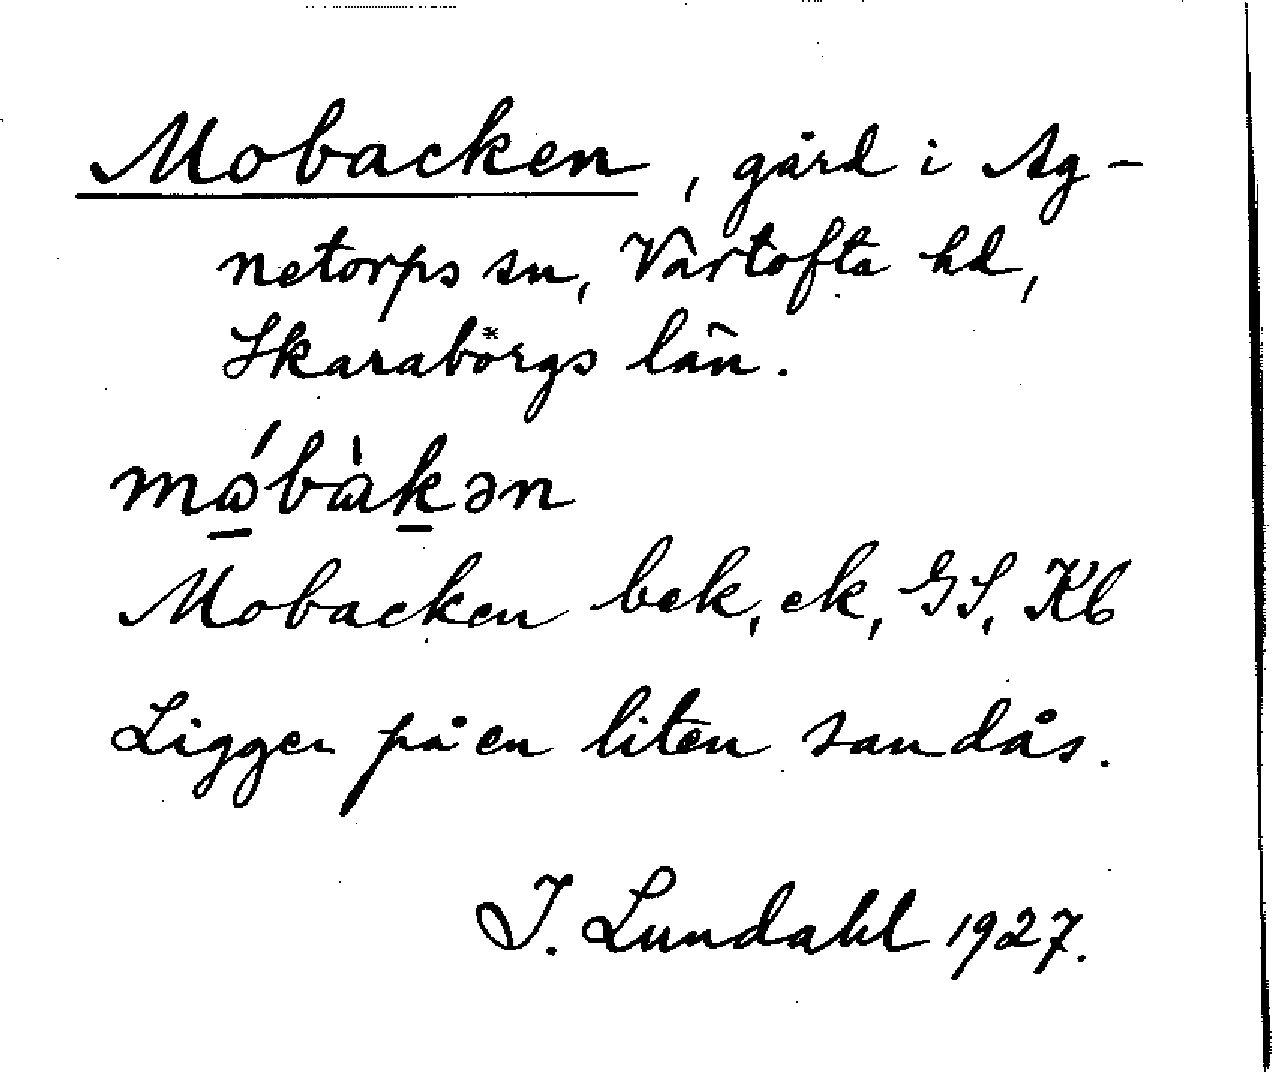 Mobacken, gård i Ag-
netorps sn, Vartofta hd,
Skaraborgs län.
Mobacken bek, ek, GS, Kb
Ligger på en liten sandås.
I. Lundahl 1927.